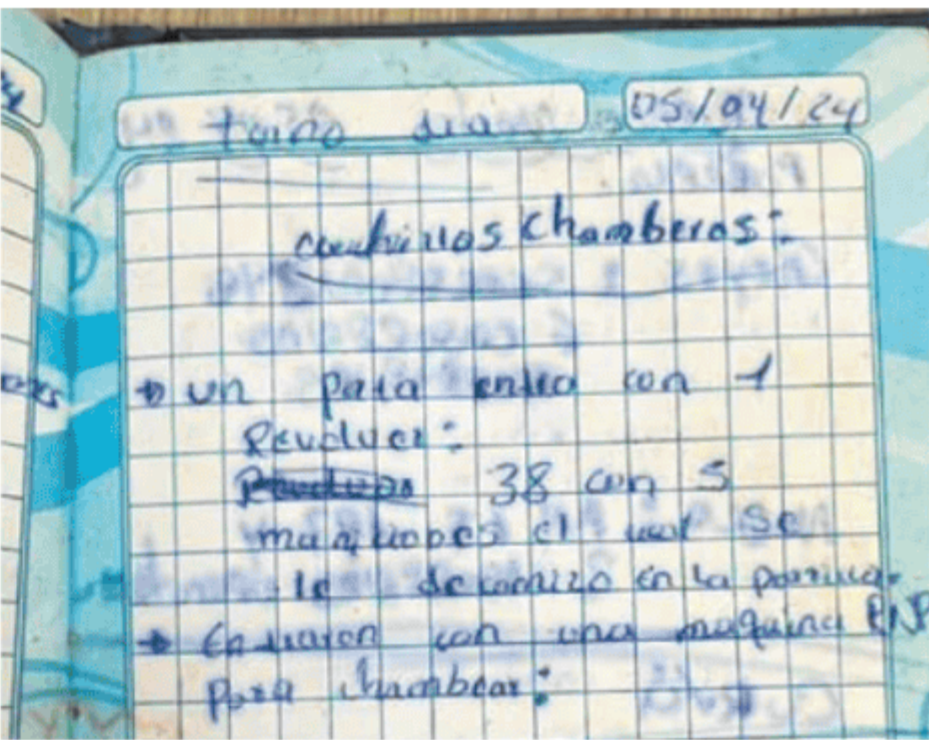 turno dia
05/04/24
cuchillos chamberos:
→ un pata entro con 1
Revolver:
38 con 5
municiones el cual se
le decomizo en la
→ Entraron con una maquina PNP
para chambear: